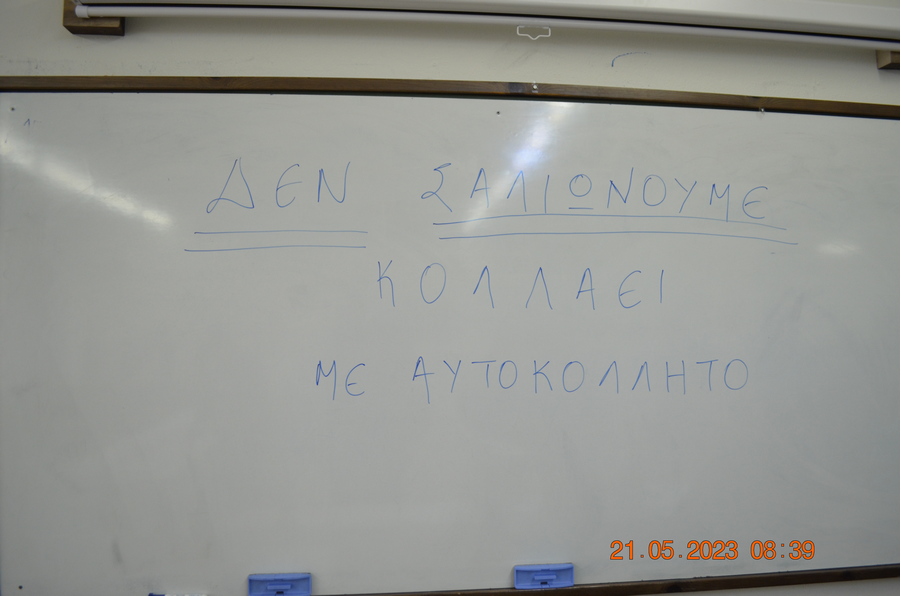 ΔΕΝ ΣΑΛΙΩΝΟΥΜΕ
ΚΟΛΛΑΕΙ
ΜΕ ΑΥΤΟΚΟΛΛΗΤΟ
21.05.2023 08:39